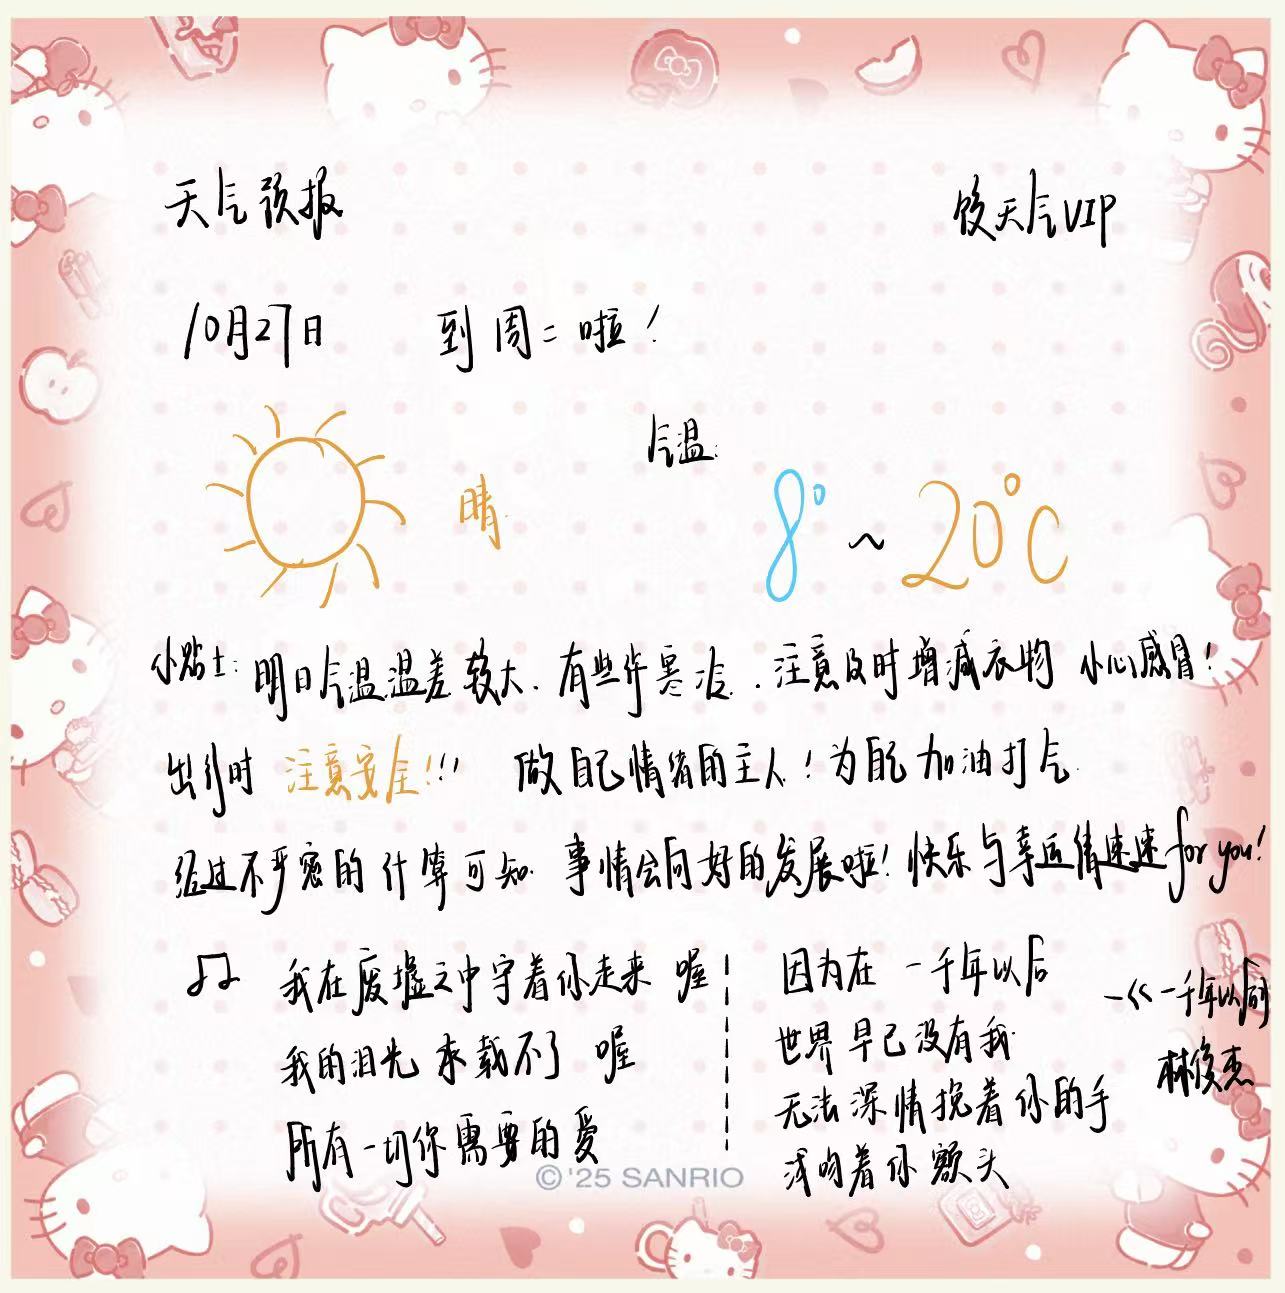 天气预报
饺天气VIP
10月27日 到周二啦！
气温：
晴
8°~20°C
小贴士：明日气温温差较大，有些许寒冷，注意及时增减衣物 小心感冒！
出行时 注意安全!!! 做自己情绪的主人！为自己加油打气
经过不严密的计算可知 事情会向好的发展啦！快乐与幸运倩速速for you!
♫ 我在废墟之中守着你走来 喔
我的泪光 承载不了 喔
所有一切你需要的爱
因为在 一千年以后
世界早已没有我
无法深情挽着你的手
浅吻着你额头
—《一千年以后》
林俊杰
©'25 SANRIO